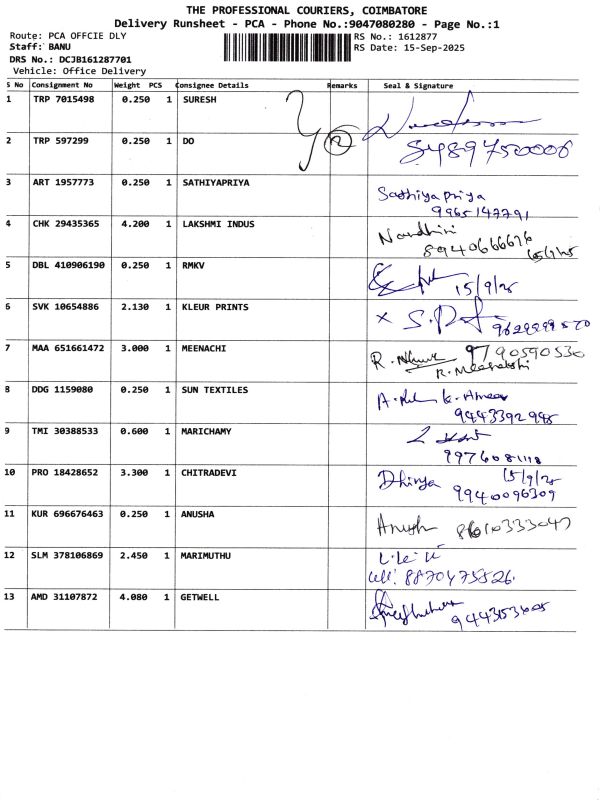 THE PROFESSIONAL COURIERS, COIMBATORE
Delivery Runsheet - PCA - Phone No.:9047080280 - Page No.:1
Route: PCA OFFCIE DLY
RS No.: 1612877
Staff: BANU
RS Date: 15-Sep-2025
DRS No.: DCJB161287701
Vehicle: Office Delivery
S No Consignment No Weight PCS Consignee Details Remarks Seal & Signature
1 TRP 7015498 0.250 1 SURESH
2 TRP 597299 0.250 1 DO 2 8489750006
3 ART 1957773 0.250 1 SATHIYAPRIYA Sathiyapriya
9965147791
4 CHK 29435365 4.200 1 LAKSHMI INDUS Nandhini
8940666676 15/9/25
5 DBL 410906190 0.250 1 RMKV 15/9/25
6 SVK 10654886 2.130 1 KLEUR PRINTS x S.
7 MAA 651661472 3.000 1 MEENACHI R. 9790590530
R. Meenakshi
8 DDG 1159080 0.250 1 SUN TEXTILES
9443392945
9 TMI 30388533 0.600 1 MARICHAMY
9976081118
10 PRO 18428652 3.300 1 CHITRADEVI Dhivya 15/9/25
9940096309
11 KUR 696676463 0.250 1 ANUSHA Anush 8610333047
12 SLM 378106869 2.450 1 MARIMUTHU
cell: 8870475526
13 AMD 31107872 4.080 1 GETWELL
9443153605